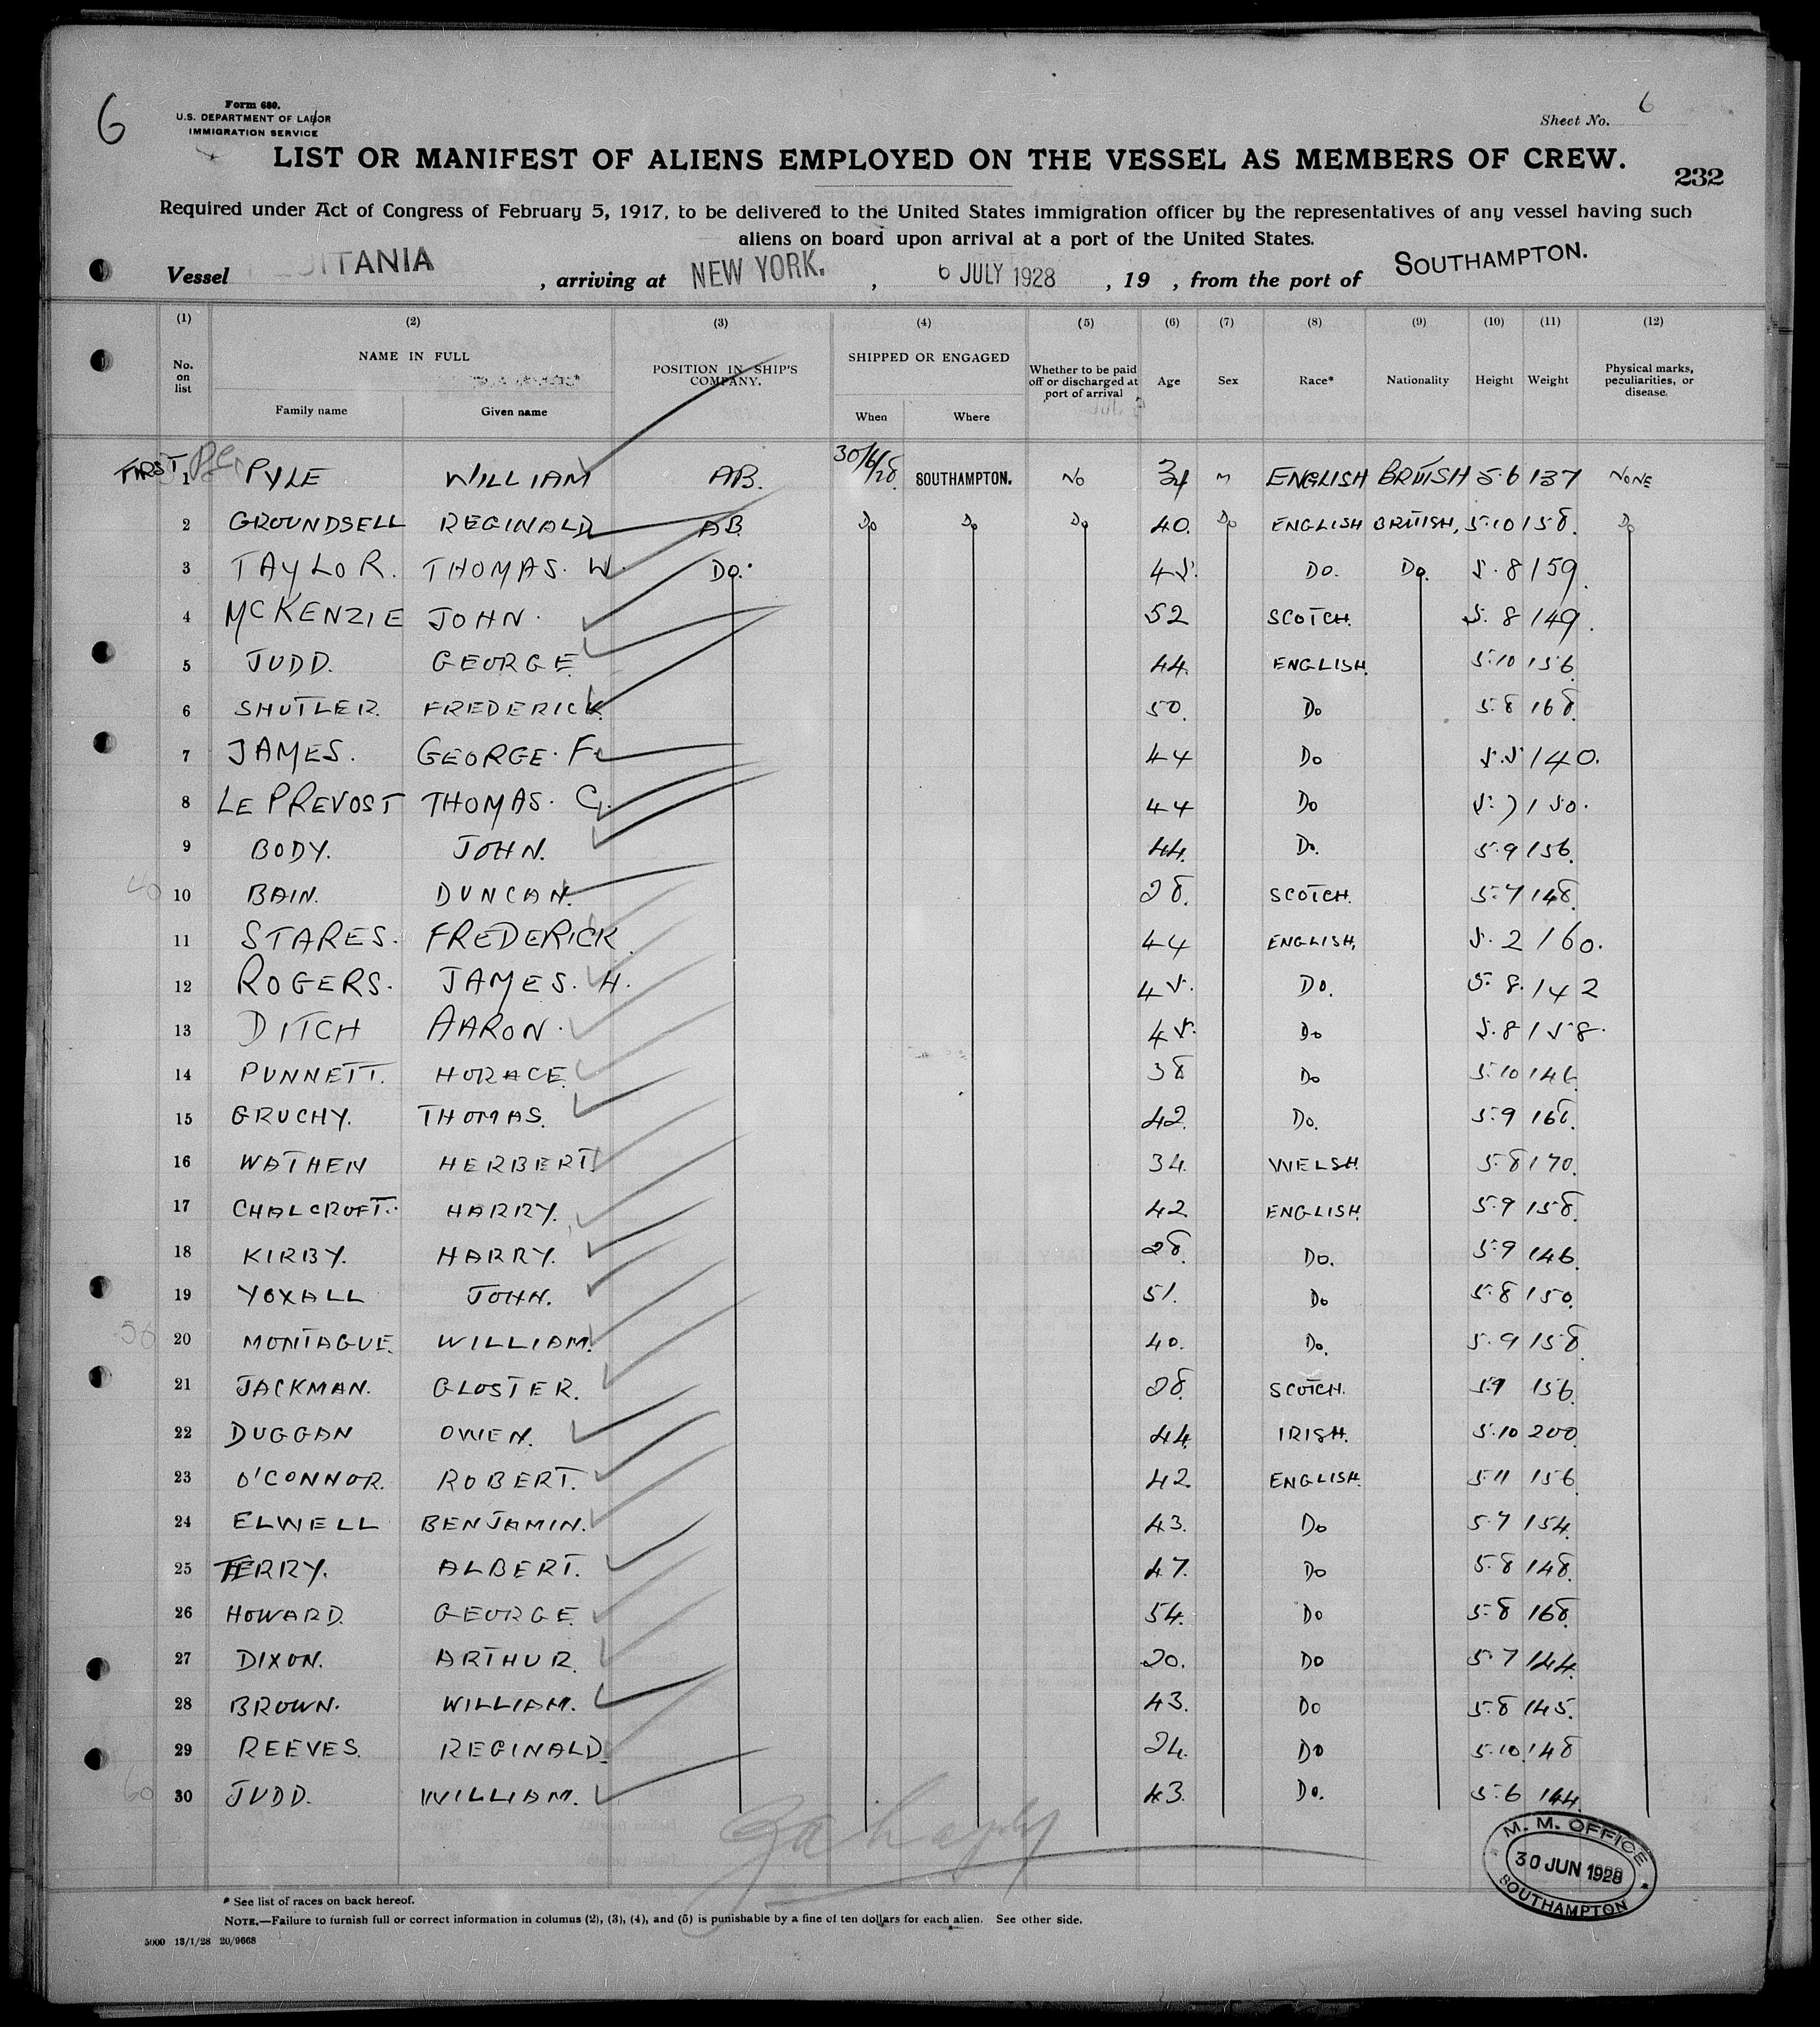 6
Form 680.
U.S. DEPARTMENT OF LABOR
IMMIGRATION SERVICE
Sheet No. 6
LIST OR MANIFEST OF ALIENS EMPLOYED ON THE VESSEL AS MEMBERS OF CREW.
232
Required under Act of Congress of February 5, 1917, to be delivered to the United States immigration officer by the representatives of any vessel having such
aliens on board upon arrival at a port of the United States.
Vessel ITANIA , arriving at NEW YORK. , 6 JULY 1928 , 19 , from the port of SOUTHAMPTON.
(1) (2) (3) (4) (5) (6) (7) (8) (9) (10) (11) (12)
No. on list NAME IN FULL POSITION IN SHIP'S COMPANY. SHIPPED OR ENGAGED Whether to be paid off or discharged at port of arrival Age Sex Race* Nationality Height Weight Physical marks, peculiarities, or disease.
Family name Given name When Where
FIRST 1 PYLE WILLIAM AB. 30/6/28. SOUTHAMPTON. NO 34 M ENGLISH BRITISH 5.6 137 NONE
2 GROUNDSELL REGINALD AB. Do Do Do 40. Do ENGLISH BRITISH. 5.10 158. Do
3 TAYLOR. THOMAS. W. Do. 45. Do. Do. 5.8 159.
4 MCKENZIE JOHN. 52 SCOTCH. 5.8 149.
5 JUDD. GEORGE 44. ENGLISH. 5.10 156.
6 SHUTLER. FREDERICK. 50. Do 5.8 168.
7 JAMES. GEORGE. F. 44 Do 5.5 140.
8 LE PREVOST THOMAS. G. 44 Do 5.7 150.
9 BODY. JOHN. 44. Do. 5.9 156.
40 10 BAIN. DUNCAN. 28. SCOTCH. 5.7 148.
11 STARES. FREDERICK. 44 ENGLISH. 5.2 160.
12 ROGERS. JAMES. H. 45. Do. 5.8. 142
13 DITCH AARON. 45. Do 5.8 158.
14 PUNNETT. HORACE. 38 Do 5.10 146.
15 GRUCHY. THOMAS. 42. Do. 5.9 166.
16 WATHEN HERBERT. 34. WELSH. 5.8 170.
17 CHALCROFT. HARRY. 42 ENGLISH. 5.9 158.
18 KIRBY. HARRY. 28. Do. 5.9 146.
19 YOXALL JOHN. 51. Do 5.8 150.
50 20 MONTAGUE. WILLIAM. 40. Do. 5.9 158.
21 JACKMAN. GLOSTER. 28. SCOTCH. 5.9 156.
22 DUGGAN OWEN. 44. IRISH. 5.10 200.
23 O'CONNOR. ROBERT. 42 ENGLISH. 5.11 156.
24 ELWELL BENJAMIN. 43. Do 5.7 154.
25 TERRY. ALBERT. 47. Do 5.8 148.
26 HOWARD. GEORGE. 54. Do 5.8 168.
27 DIXON. ARTHUR. 20. Do 5.7 144.
28 BROWN. WILLIAM. 43. Do 5.8 145.
29 REEVES. REGINALD. 24. Do 5.10. 148
60 30 JUDD. WILLIAM. 43. Do. 5.6 144.
M. M. OFFICE
30 JUN 1928
SOUTHAMPTON
* See list of races on back hereof.
NOTE.—Failure to furnish full or correct information in columns (2), (3), (4), and (5) is punishable by a fine of ten dollars for each alien. See other side.
5000 13/1/28 20/9668